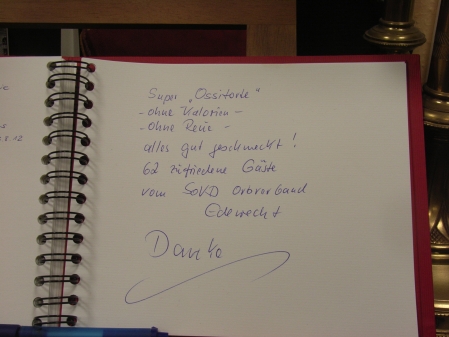 Super „Ossitorte"
- ohne Kalorien -
- ohne Reue -
alles gut geschmeckt!
62 zufriedene Gäste
vom SoVD Ortsverband
Edewecht
Danke